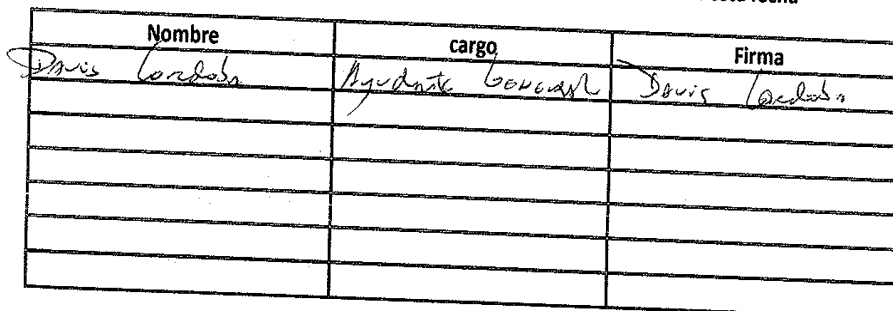 fecha
Nombre cargo Firma
Davis Cordoba Ayudante General Davis Cordoba